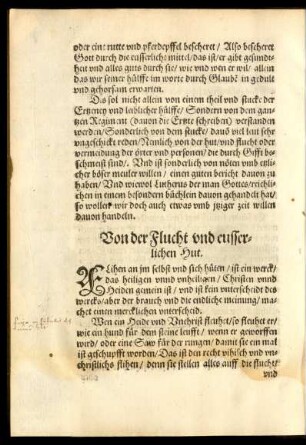 oder eine rutte vnd pferdepffel bescheret / Also bescheret
Gott durch die eusserliche mittel / das ist / er gibt gesund=
heit vnd alles guts durch sie / wie vnd wen er wil / allein
das wir seiner hülffe im worte durch Glaubē in gedult
vnd gehorsam erwarten.
Das sol nicht allein von einem theil vnd stucke der
Ertzeney vnd leiblicher hülffe / Sondern von dem gan=
tzen Regiment (dauon die Ertzte schreiben) verstanden
werden / Sonderlich von dem stucke / dauō viel leut sehr
vngeschickt reden / Nemlich von der hut / vnd flucht oder
vermeidung der örter vnd personen / die durch Gifft be=
schmeist sind / Vnd ist sonderlich von nöten vmb etzli=
cher böser meuler willen / einen guten bericht dauon zu
haben / Vnd wiewol Lutherus der man Gottes / reichli=
chen in einem besondern büchlein dauon gehandelt hat /
so wollen wir doch auch etwas vmb jtziger zeit willen
dauon handeln.
Von der Flucht vnd eusser=
lichen Hut.
FLihen an jm selbst vnd sich hüten / ist ein werck /
das heiligen vnnd vnheiligen / Christen vnnd
Heiden gemein ist / vnd ist kein vnterscheidt des
wercks / aber der brauch vnd die endliche meinung / ma=
chet einen mercklichen vnterscheid.
Wen ein Heide vnd Vnchrist fleuhet / so fleuhet er /
wie ein hund für dem steine leufft / wenn er geworffen
wird / oder eine Saw für der rungen / damit sie ein mal
ist geschupfft worden / Das ist den recht vihisch vnd vn=
christlichs flihen / denn sie stellen alles auff die flucht /
vnd